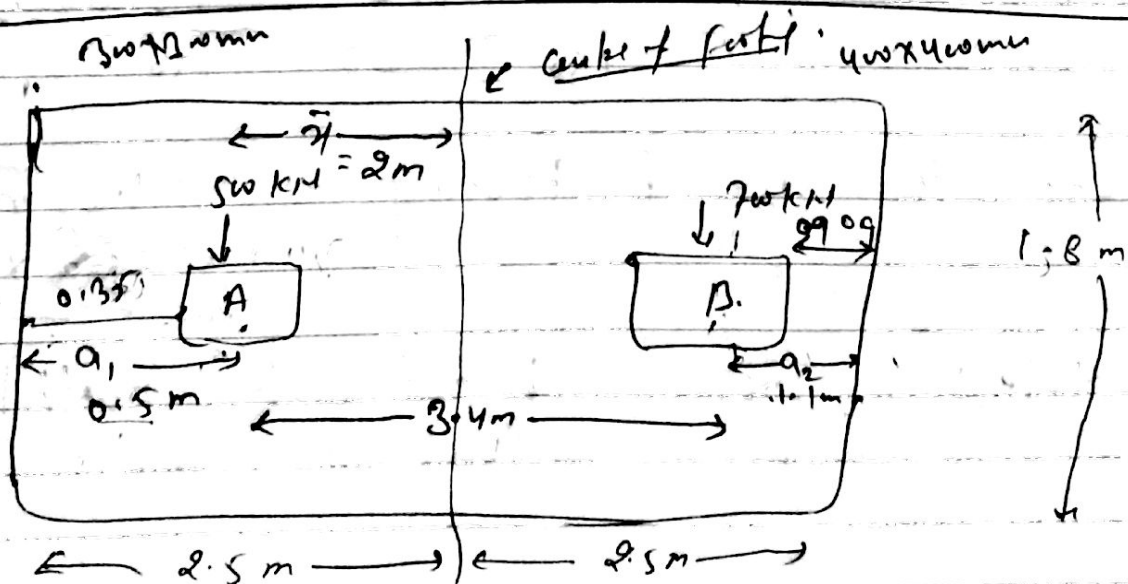 300x300mm
centre of footing
400x400mm
x̄
= 2m
500 KN
700 KN
0.35
A
B
1.8 m
a₁
0.5 m
a₂
1.1m
3.4m
2.5 m
2.5m